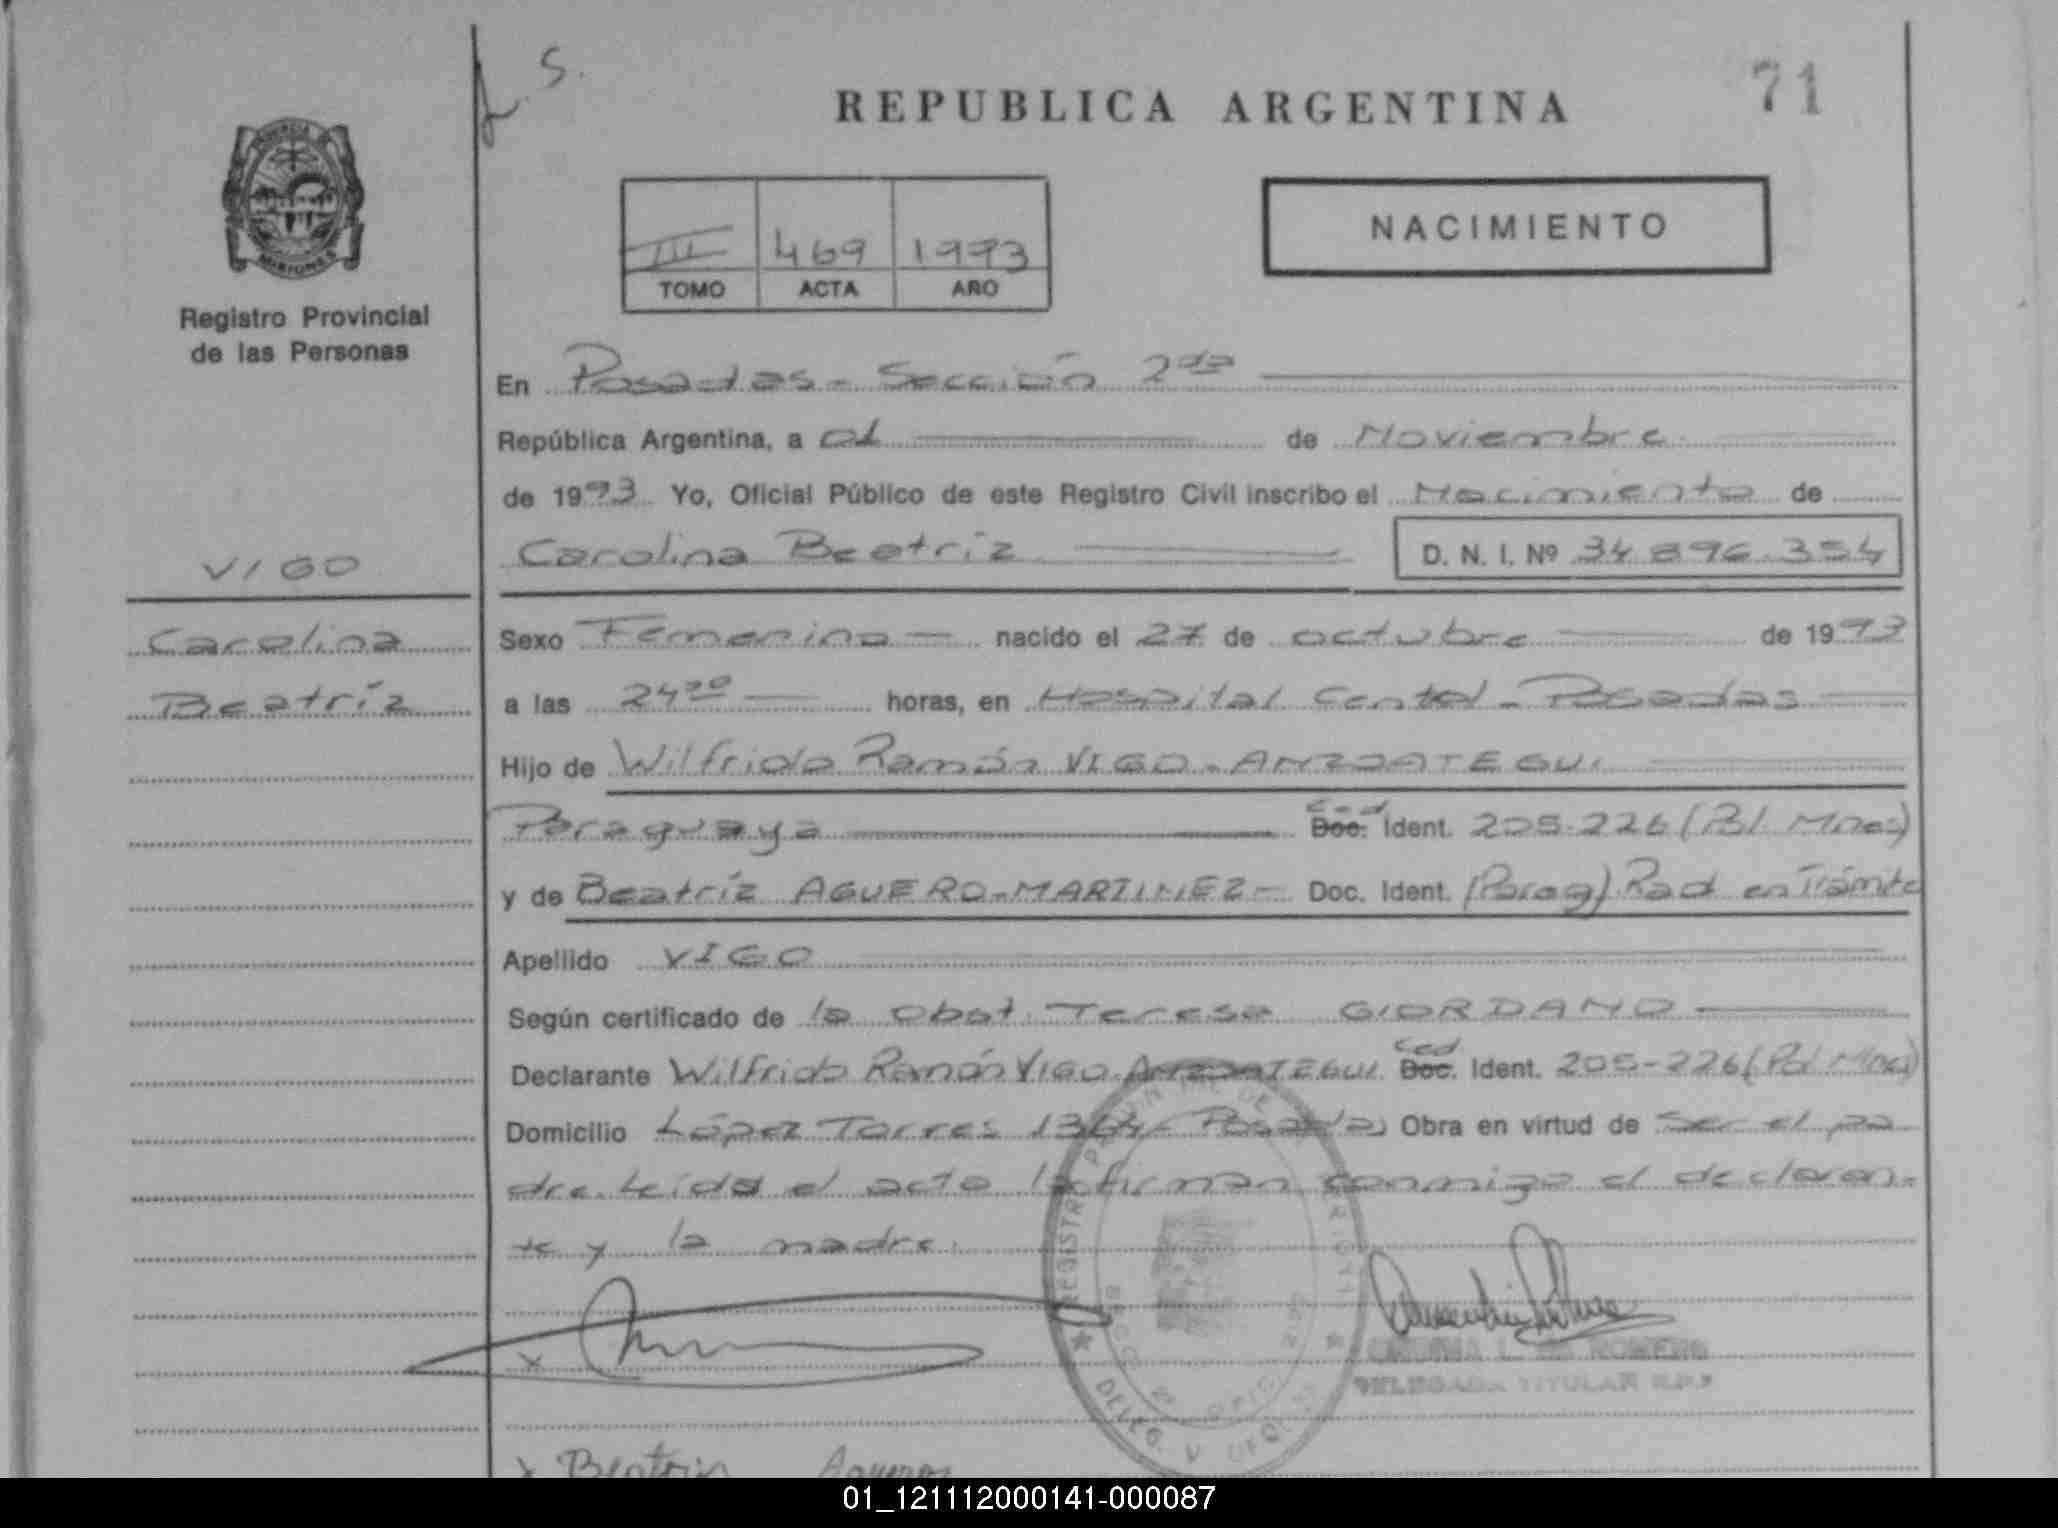 L. S.
REPUBLICA ARGENTINA
71
PROVINCIA
MISIONES
Registro Provincial
de las Personas
III 469 1993
TOMO ACTA AÑO
NACIMIENTO
En Posadas - Sección 2da
República Argentina, a 01 de Noviembre
de 1993 Yo, Oficial Público de este Registro Civil inscribo el Nacimiento de
Carolina Beatríz D. N. I. Nº 34 896.354
VIGO
Carolina
Beatríz
Sexo Femenino nacido el 27 de octubre de 1993
a las 24 horas, en Hospital Central - Posadas
Hijo de Wilfrido Ramón VIGO - ANZOATEGUI
Paraguaya Ced Doc. Ident. 205.226 (Pol. Mnes)
y de Beatríz AGUERO-MARTINEZ - Doc. Ident. (Parag) Rad en Trámite
Apellido VIGO
Según certificado de la Obst. Teresa GIORDANO
Declarante Wilfrido Ramón VIGO ANZOATEGUI Ced Doc. Ident. 205-226 (Pol Mnes)
Domicilio López Torres 1364 - Posadas Obra en virtud de Ser el pa
dre. Leída el acta la firman conmigo el declaran-
te y la madre.
REGISTRO
DELEG.
x
DELEGADA TITULAR R.P.P
x Beatriz Aguero
01_121112000141-000087